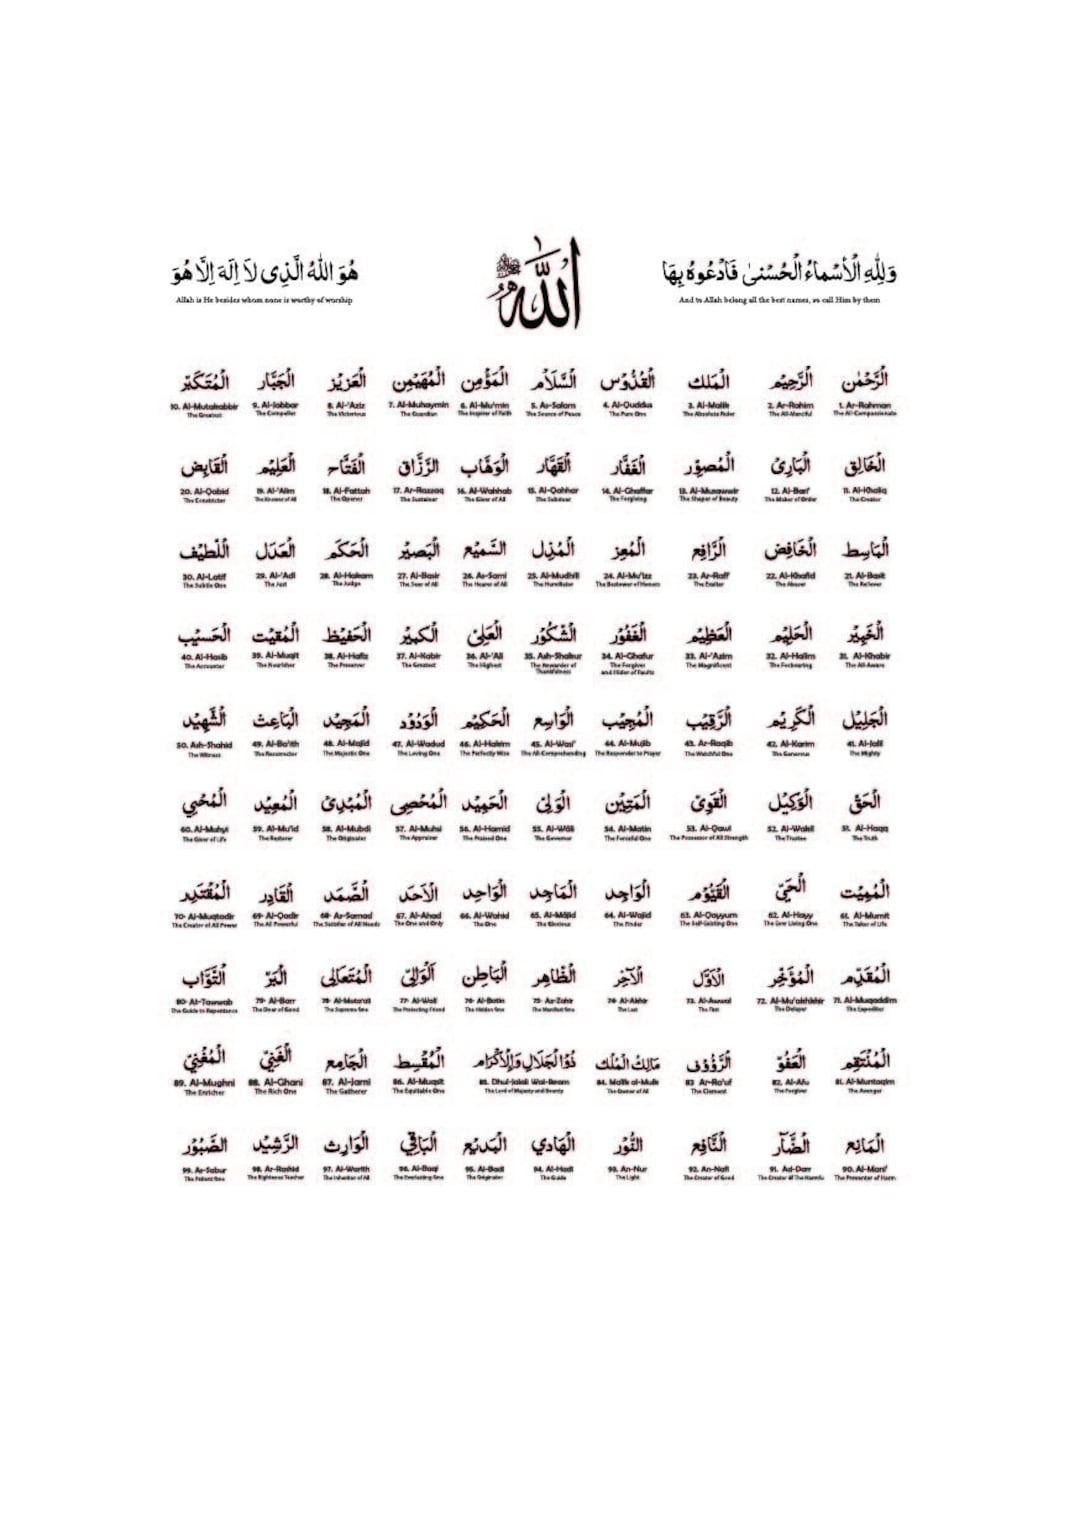 وَلِلّٰهِ الْاَسْمَاءُ الْحُسْنٰى فَادْعُوهُ بِهَا
And to Allah belong all the best names, so call Him by them
اللّٰه
هُوَ اللّٰهُ الَّذِى لَا اِلٰهَ اِلَّا هُوَ
Allah is He besides whom none is worthy of worship
الْرَّحْمٰن الْرَّحِيْم الْمَلِك الْقُدُّوْس الْسَّلَام الْمُؤْمِن الْمُهَيْمِن الْعَزِيْز الْجَبَّار الْمُتَكَبِّر
1. Ar-Rahman 2. Ar-Rahim 3. Al-Malik 4. Al-Quddus 5. As-Salam 6. Al-Mu'min 7. Al-Muhaymin 8. Al-'Aziz 9. Al-Jabbar 10. Al-Mutakabbir
The All-Compassionate The All-Merciful The Absolute Ruler The Pure One The Source of Peace The Inspirer of Faith The Guardian The Victorious The Compeller The Greatest
الْخَالِق الْبَارِئ الْمُصَوِّر الْغَفَّار الْقَهَّار الْوَهَّاب الْرَّزَّاق الْفَتَّاح الْعَلِيْم الْقَابِض
11. Al-Khaliq 12. Al-Bari' 13. Al-Musawwir 14. Al-Ghaffar 15. Al-Qahhar 16. Al-Wahhab 17. Ar-Razzaq 18. Al-Fattah 19. Al-'Alim 20. Al-Qabid
The Creator The Maker of Order The Shaper of Beauty The Forgiving The Subduer The Giver of All The Sustainer The Opener The Knower of All The Constrictor
الْبَاسِط الْخَافِض الْرَّافِع الْمُعِز الْمُذِل الْسَّمِيْع الْبَصِيْر الْحَكَم الْعَدَل اللَّطِيْف
21. Al-Basit 22. Al-Khafid 23. Ar-Rafi' 24. Al-Mu'izz 25. Al-Mudhill 26. As-Sami 27. Al-Basir 28. Al-Hakam 29. Al-'Adl 30. Al-Latif
The Reliever The Abaser The Exalter The Bestower of Honors The Humiliator The Hearer of All The Seer of All The Judge The Just The Subtle One
الْخَبِيْر الْحَلِيْم الْعَظِيْم الْغَفُوْر الْشَّكُوْر الْعَلِىّ الْكَبِيْر الْحَفِيْظ الْمُقِيْت الْحَسِيْب
31. Al-Khabir 32. Al-Halim 33. Al-'Azim 34. Al-Ghafur 35. Ash-Shakur 36. Al-'Ali 37. Al-Kabir 38. Al-Hafiz 39. Al-Muqit 40. Al-Hasib
The All-Aware The Forbearing The Magnificent The Forgiver and Hider of Faults The Rewarder of Thankfulness The Highest The Greatest The Preserver The Nourisher The Accounter
الْجَلِيْل الْكَرِيْم الْرَّقِيْب الْمُجِيْب الْوَاسِع الْحَكِيْم الْوَدُوْد الْمَجِيْد الْبَاعِث الْشَّهِيْد
41. Al-Jalil 42. Al-Karim 43. Ar-Raqib 44. Al-Mujib 45. Al-Wasi' 46. Al-Hakim 47. Al-Wadud 48. Al-Majid 49. Al-Ba'ith 50. Ash-Shahid
The Mighty The Generous The Watchful One The Responder to Prayer The All-Comprehending The Perfectly Wise The Loving One The Majestic One The Resurrector The Witness
الْحَقّ الْوَكِيْل الْقَوِىّ الْمَتِيْن الْوَلِىّ الْحَمِيْد الْمُحْصِى الْمُبْدِئ الْمُعِيْد الْمُحْيِي
51. Al-Haqq 52. Al-Wakil 53. Al-Qawi 54. Al-Matin 55. Al-Wāli 56. Al-Hamid 57. Al-Muhsi 58. Al-Mubdi 59. Al-Mu'id 60. Al-Muhyi
The Truth The Trustee The Possessor of All Strength The Forceful One The Governor The Praised One The Appraiser The Originator The Restorer The Giver of Life
الْمُمِيْت الْحَيّ الْقَيُّوْم الْوَاجِد الْمَاجِد الْوَاحِد الْاَحَد الْصَّمَد الْقَادِر الْمُقْتَدِر
61. Al-Mumit 62. Al-Hayy 63. Al-Qayyum 64. Al-Wajid 65. Al-Mājid 66. Al-Wahid 67. Al-Ahad 68. As-Samad 69. Al-Qadir 70. Al-Muqtadir
The Taker of Life The Ever Living One The Self-Existing One The Finder The Glorious The One The One and Only The Satisfier of All Needs The All Powerful The Creator of All Power
الْمُقَدِّم الْمُؤَخِّر الْاَوَّل الْآخِر الْظَّاهِر الْبَاطِن الْوَالِيّ الْمُتَعَالِى الْبَرّ الْتَّوَّاب
71. Al-Muqaddim 72. Al-Mu'akhkhir 73. Al-Awwal 74. Al-Akhir 75. Az-Zahir 76. Al-Batin 77. Al-Wali 78. Al-Muta'ali 79. Al-Barr 80. At-Tawwab
The Expediter The Delayer The First The Last The Manifest One The Hidden One The Protecting Friend The Supreme One The Doer of Good The Guide to Repentance
الْمُنْتَقِم الْعَفُوّ الْرَّؤُوْف مَالِكُ الْمُلْك ذُوْالْجَلَالِ وَالْاِكْرَام الْمُقْسِط الْجَامِع الْغَنِيّ الْمُغْنِيّ
81. Al-Muntaqim 82. Al-Afu 83 Ar-Ra'uf 84. Malik al-Mulk 85. Dhul-Jalali Wal-Ikram 86. Al-Muqsit 87. Al-Jami 88. Al-Ghani 89. Al-Mughni
The Avenger The Forgiver The Clement The Owner of All The Lord of Majesty and Bounty The Equitable One The Gatherer The Rich One The Enricher
الْمَانِع الْضَّآر الْنَّافِع الْنُّوْر الْهَادِي الْبَدِيْع الْبَاقِي الْوَارِث الْرَّشِيْد الْصَّبُوْر
90. Al-Mani' 91. Ad-Darr 92. An-Nafi 93. An-Nur 94. Al-Hadi 95. Al-Badi 96. Al-Baqi 97. Al-Warith 98. Ar-Rashid 99. As-Sabur
The Preventer of Harm The Creator of The Harmful The Creator of Good The Light The Guide The Originator The Everlasting One The Inheritor of All The Righteous Teacher The Patient One